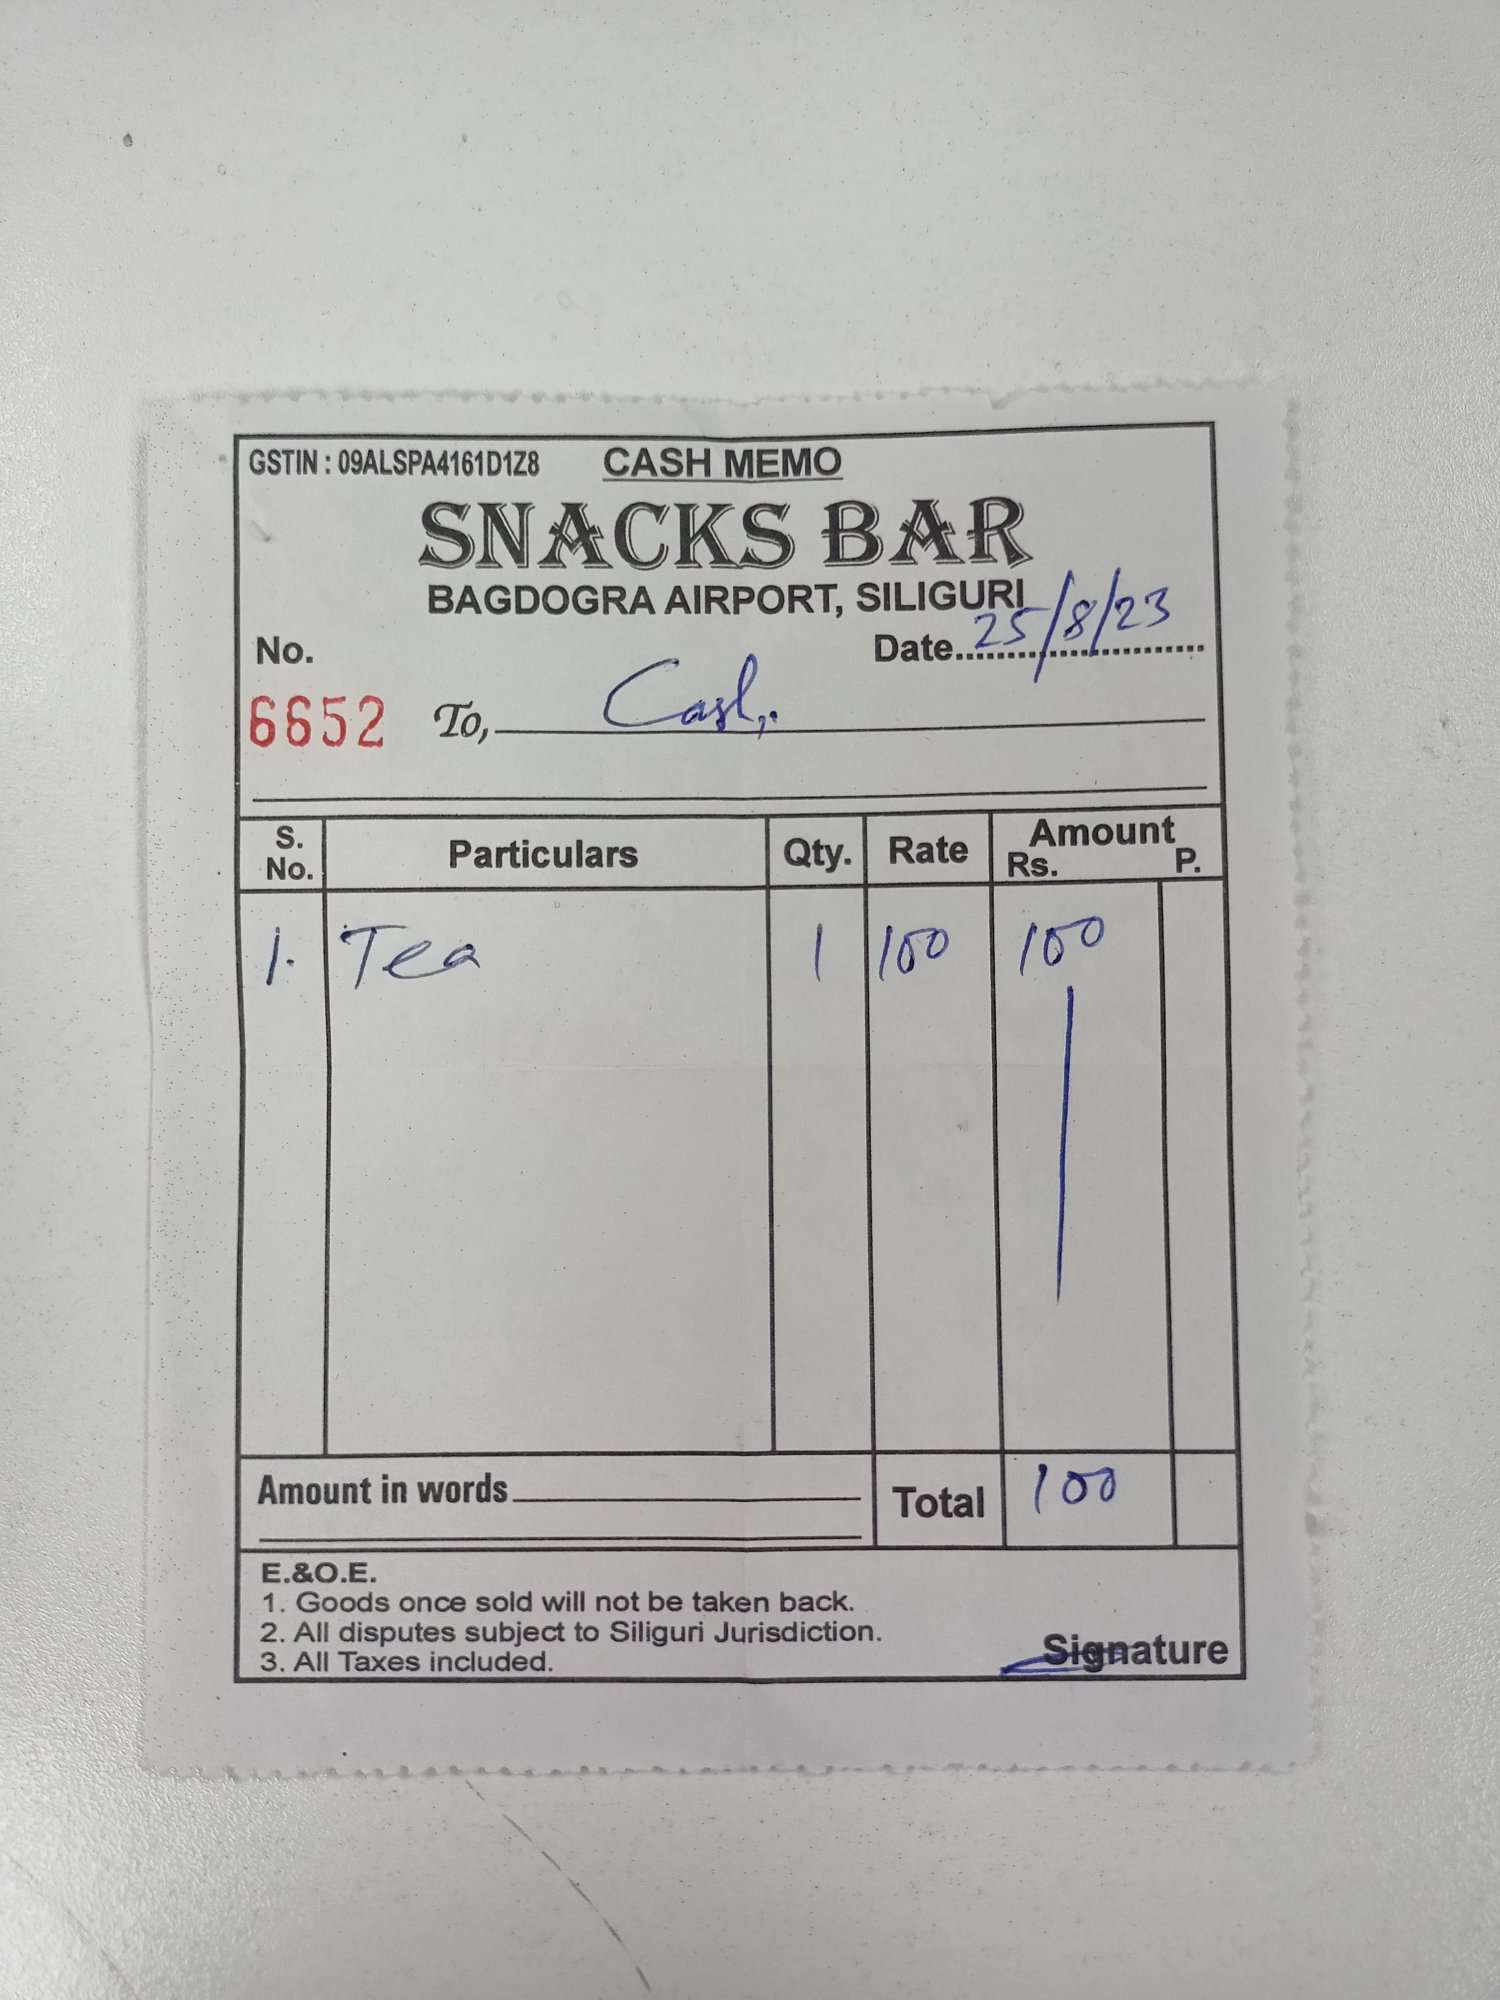 GSTIN : 09ALSPA4161D1Z8 CASH MEMO
SNACKS BAR
BAGDOGRA AIRPORT, SILIGURI
No. Date 25/8/23
6652 To, Cash
S. No. Particulars Qty. Rate Amount Rs. P.
1. Tea 1 100 100
Amount in words Total 100
E.&O.E.
1. Goods once sold will not be taken back.
2. All disputes subject to Siliguri Jurisdiction.
3. All Taxes included. Signature